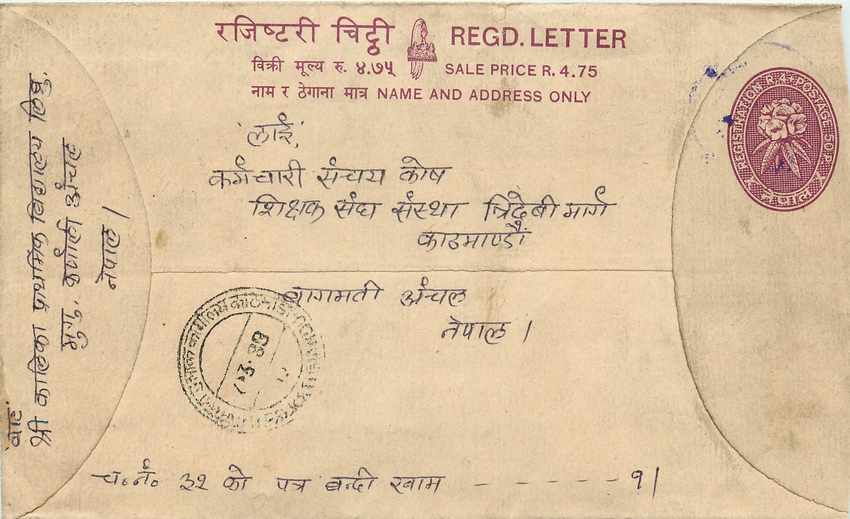 रजिष्टरी चिट्ठी REGD. LETTER
विक्री मूल्य रु. ४.७५ SALE PRICE R. 4.75
नाम र ठेगाना मात्र NAME AND ADDRESS ONLY
REGISTRATION &. POSTAGE 50 P.
नेपाल
लाई,
कर्मचारी संचय कोष
शिक्षक संघ संस्था त्रिदेबी मार्ग
काठमाण्डौं
बागमती अंचल
नेपाल।
बाट
श्री कालिका प्राथमिक विद्यालय
मुगु. कर्णाली अंचल
नेपाल।
च.नं. ३२ को पत्र बन्दी खाम - - - - - - १।